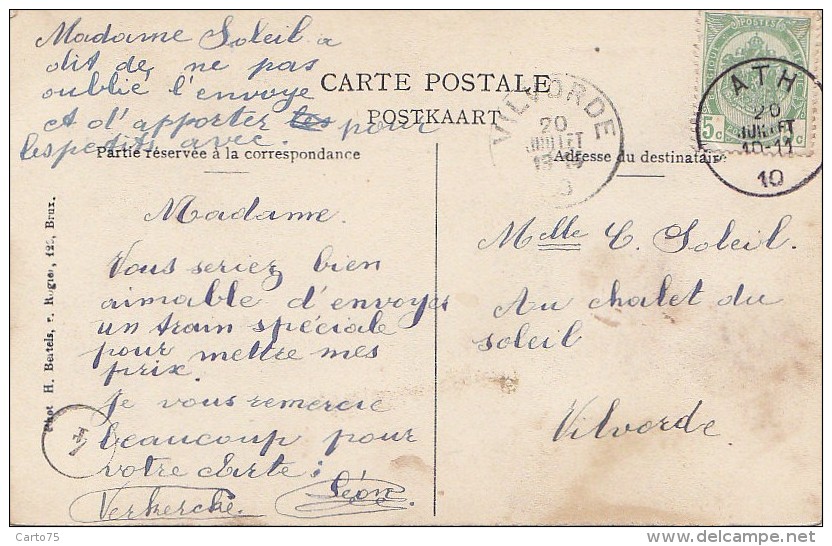 Madame Soleil a
dit de ne pas
oublié l'envoye
et d'apporter les pour
les petits avec.
CARTE POSTALE
POSTKAART
Partie réservée à la correspondance
Adresse du destinataire
VILVORDE
20
JUILLET
POSTES
5 c
ATH
20
JUILLET
10-11
10
Madame.
Vous seriez bien
aimable d'envoyer
un train spéciale
pour mettre mes
prix.
Je vous remercie
beaucoup pour
votre carte:
Léon
Verkercke.
Melle C. Soleil.
Au chalet du
soleil
Vilvorde.
Phot H. Bertels, r. Rogier, 126, Brux.
Carto75
delcampe.net